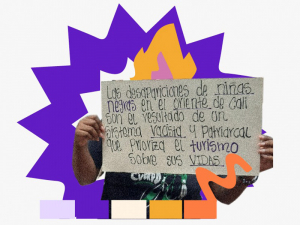 Las desapariciones de niñas
negras en el oriente de Cali
son el resultado de un
sistema racista y patriarcal
que prioriza el turismo
sobre sus vidas.